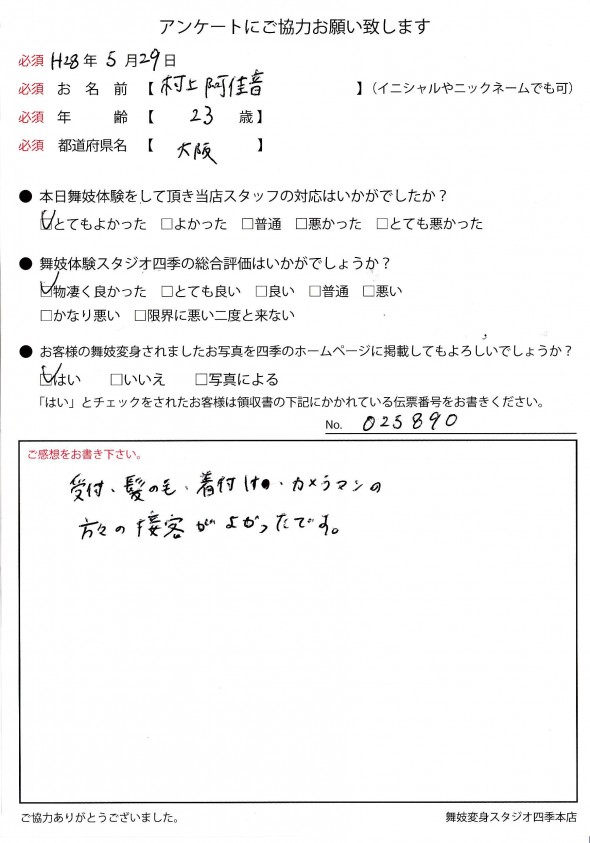 アンケートにご協力お願い致します
必須 H28年 5月29日
必須 お名前【 村上阿佳音 】（イニシャルやニックネームでも可）
必須 年齢【 23 歳】
必須 都道府県名【 大阪 】
● 本日舞妓体験をして頂き当店スタッフの対応はいかがでしたか？
☑とてもよかった □よかった □普通 □悪かった □とても悪かった
● 舞妓体験スタジオ四季の総合評価はいかがでしょうか？
☑物凄く良かった □とても良い □良い □普通 □悪い
□かなり悪い □限界に悪い二度と来ない
● お客様の舞妓変身されましたお写真を四季のホームページに掲載してもよろしいでしょうか？
☑はい □いいえ □写真による
「はい」とチェックをされたお客様は領収書の下記にかかれている伝票番号をお書きください。
No. 025890
ご感想をお書き下さい。
受付、髪の毛、着付け・カメラマンの
方々の接客がよかったです。
ご協力ありがとうございました。
舞妓変身スタジオ四季本店